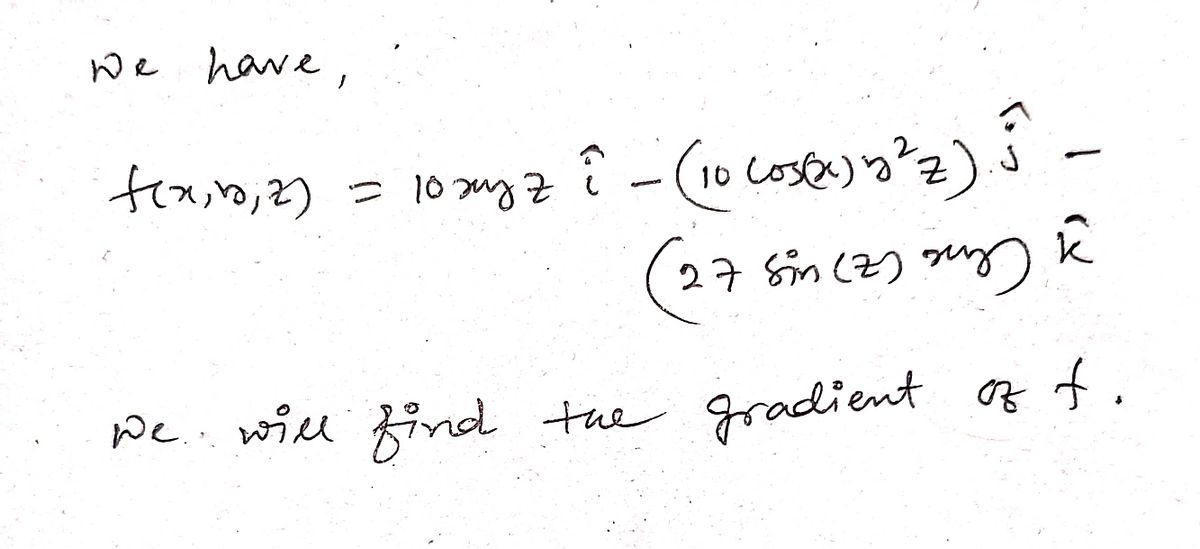 We have,
f(x,y,z) = 10xyz î - (10 cos(x) y²z) ĵ -
(27 sin(z) xy) k̂
We will find the gradient of f.